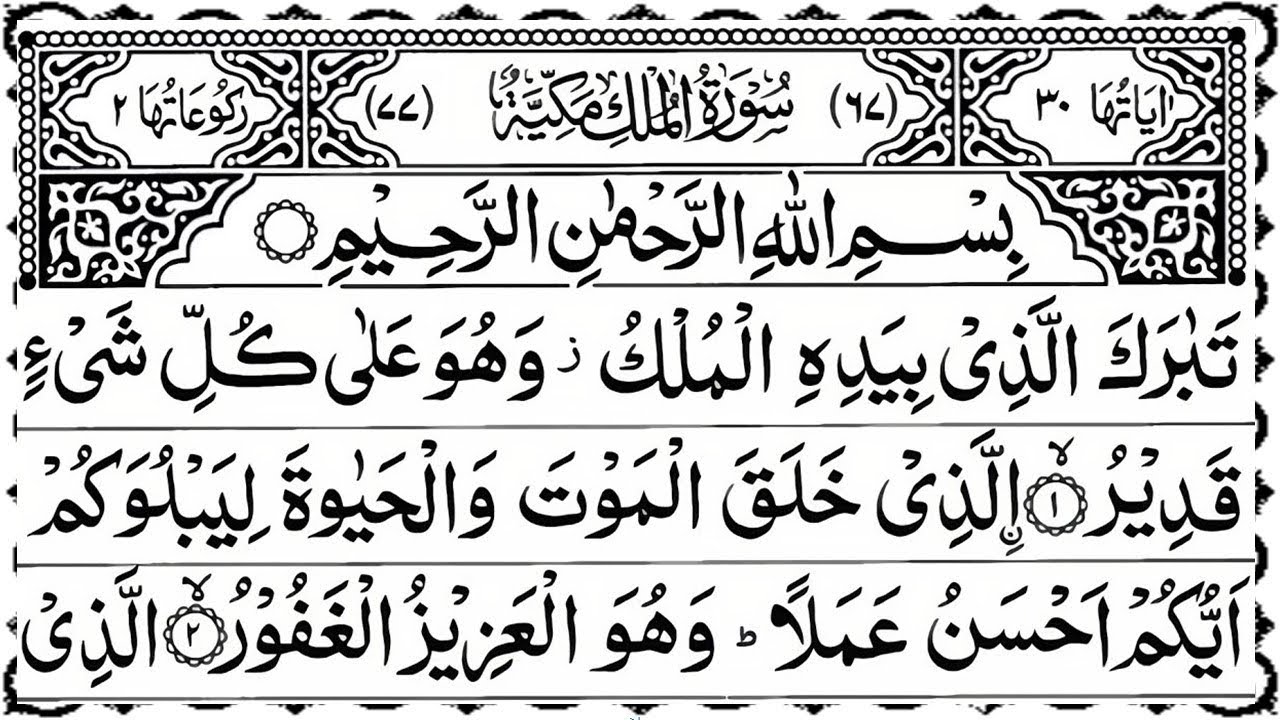 اٰيَاتُهَا ٣٠ (٦٧) سُوْرَةُ الْمُلْكِ مَكِّيَّةٌ (٧٧) رُكُوْعَاتُهَا ٢
بِسْمِ اللّٰهِ الرَّحْمٰنِ الرَّحِيْمِ
تَبٰرَكَ الَّذِىْ بِيَدِهِ الْمُلْكُ ز وَهُوَ عَلٰى كُلِّ شَىْءٍ
قَدِيْرُ ۙ﴿١﴾ نِ الَّذِىْ خَلَقَ الْمَوْتَ وَالْحَيٰوةَ لِيَبْلُوَكُمْ
اَيُّكُمْ اَحْسَنُ عَمَلًا ؕ وَهُوَ الْعَزِيْزُ الْغَفُوْرُ ۙ﴿٢﴾ الَّذِىْ